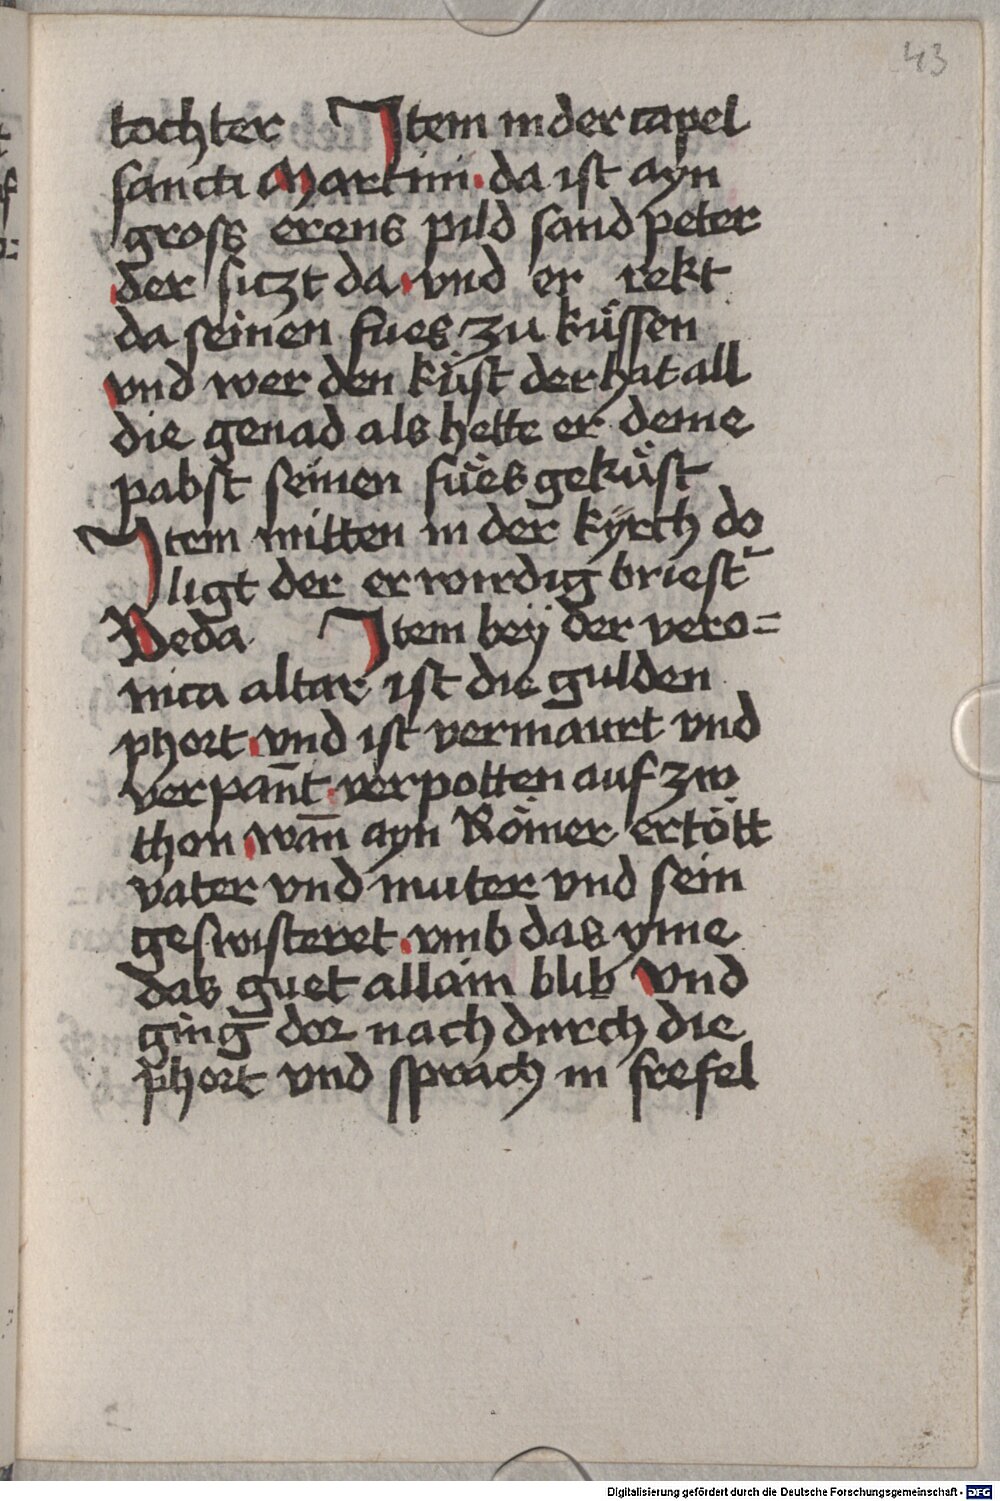 43
tochter Item in der capel
sancti Martini da ist ayn
gross erens pild sand peter
der siczt da vnd er rekt
da seinen fues zu küssen
vnd wer den küst der hat all
die genad als hette er deme
pabst seinen fües geküst
Item mitten in der kÿrch do
ligt der erwirdig briest
Beda Item beÿ der vero=
nica altar ist die gulden
phort vnd ist vermaurt vnd
verpan̄t verpotten auf zw
thon wan̄ ayn Römer ertött
vater vnd muter vnd sein
geswisteret vmb das yme
das guet allain blib Vnd
ging dor nach durch die
phort vnd sprach in frefel
Digitalisierung gefördert durch die Deutsche Forschungsgemeinschaft - DFG